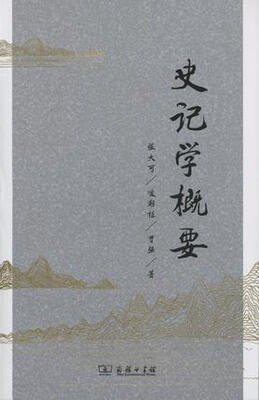 史记学概要
张大可/凌朝栋/曹强/著
商务印书馆
The Commercial Press